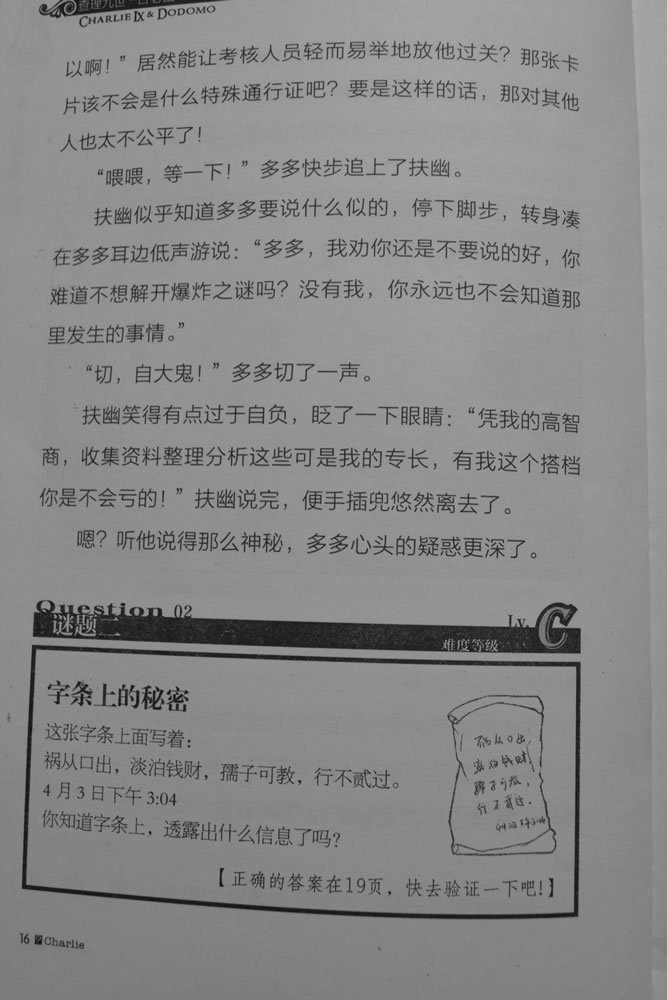 CHARLIE IX & DODOMO
以啊！”居然能让考核人员轻而易举地放他过关？那张卡
片该不会是什么特殊通行证吧？要是这样的话，那对其他
人也太不公平了！
“喂喂，等一下！”多多快步追上了扶幽。
扶幽似乎知道多多要说什么似的，停下脚步，转身凑
在多多耳边低声游说：“多多，我劝你还是不要说的好，你
难道不想解开爆炸之谜吗？没有我，你永远也不会知道那
里发生的事情。”
“切，自大鬼！”多多切了一声。
扶幽笑得有点过于自负，眨了一下眼睛：“凭我的高智
商，收集资料整理分析这些可是我的专长，有我这个搭档
你是不会亏的！”扶幽说完，便手插兜悠然离去了。
嗯？听他说得那么神秘，多多心头的疑惑更深了。
Question 02
谜题二
Lv. C
难度等级
字条上的秘密
这张字条上面写着：
祸从口出，淡泊钱财，孺子可教，行不贰过。
4月3日下午3:04
你知道字条上，透露出什么信息了吗？
祸从口出，
淡泊钱财，
孺子可教，
行不贰过。
【正确的答案在19页，快去验证一下吧！】
16 Charlie